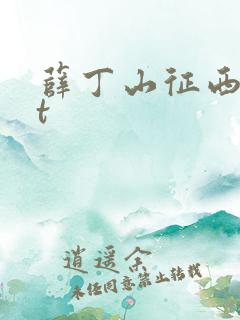 薛丁山征西
t
逍遥余
未经同意禁止转载